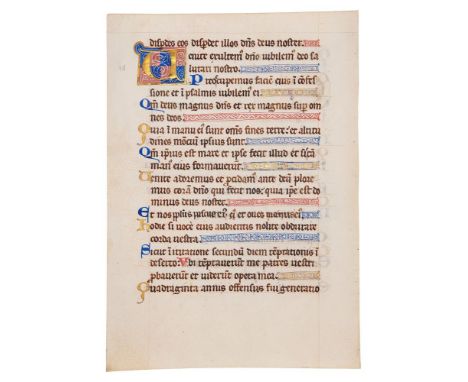 disperdes eos disperdet illos dñs deus noster.
Venite exultem dño iubilem deo sa
lutari nostro.
Preoccupemus faciē eius ī cōfes
sione et ī psalmis iubilem ei.
Qm̄ deus magnus dñs et rex magnus sup om
nes deos.
Quia ī manu eī sunt om̄s fines terre: et altitu
dines mōtium ipsius sunt.
Qm̄ ipius est mare et ipse fecit illud et siccā
man eius formauerūt.
Venite adoremus et padam ante deū plore
mus corā dño qui fecit nos: quia ipe est do
minus deus noster.
Et nos pplus et oues manus eī
Hodie si uocē eius audieritis nolite obdurare
corda uestra.
Sicut ī irritatione secundū diem temptationis ī
deserto: Vbi temptauerūt me patres uestri
pbauerūt et uiderūt opera mea.
Quadraginta annis offensus fui generatio